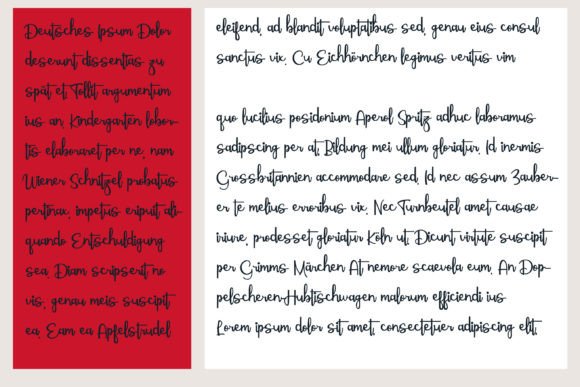 Deutsches Ipsum Dolor
deserunt dissentias zu
spät et, Tollit argumentum
ius an. Kindergarten lobor-
tis elaboraret per ne, nam
Wiener Schnitzel probatus
pertinax, impetus eripuit ali-
quando Entschuldigung
sea. Diam scripserit no
vis, genau meis suscipit
ea. Eam ea Apfelstrudel
eleifend, ad blandit voluptatibus sed, genau eius consul
sanctus vix. Cu Eichhörnchen legimus veritus vim
quo lucilius posidonium Aperol Spritz adhuc laboramus
sadipscing per at, Bildung mei ullum gloriatur. Id inermis
Grossbritannien accommodare sed, Id nec assum Zauber-
er te melius erroribus vix. Nec Turnbeutel amet causae
iriure, prodesset gloriatur Köln ut. Dicunt virtute suscipit
per Grimms Märchen At nemore scaevola eum. An Dop-
pelscheren-Hubtischwagen malorum efficiendi ius
Lorem ipsum dolor sit amet, consectetuer adipiscing elit,